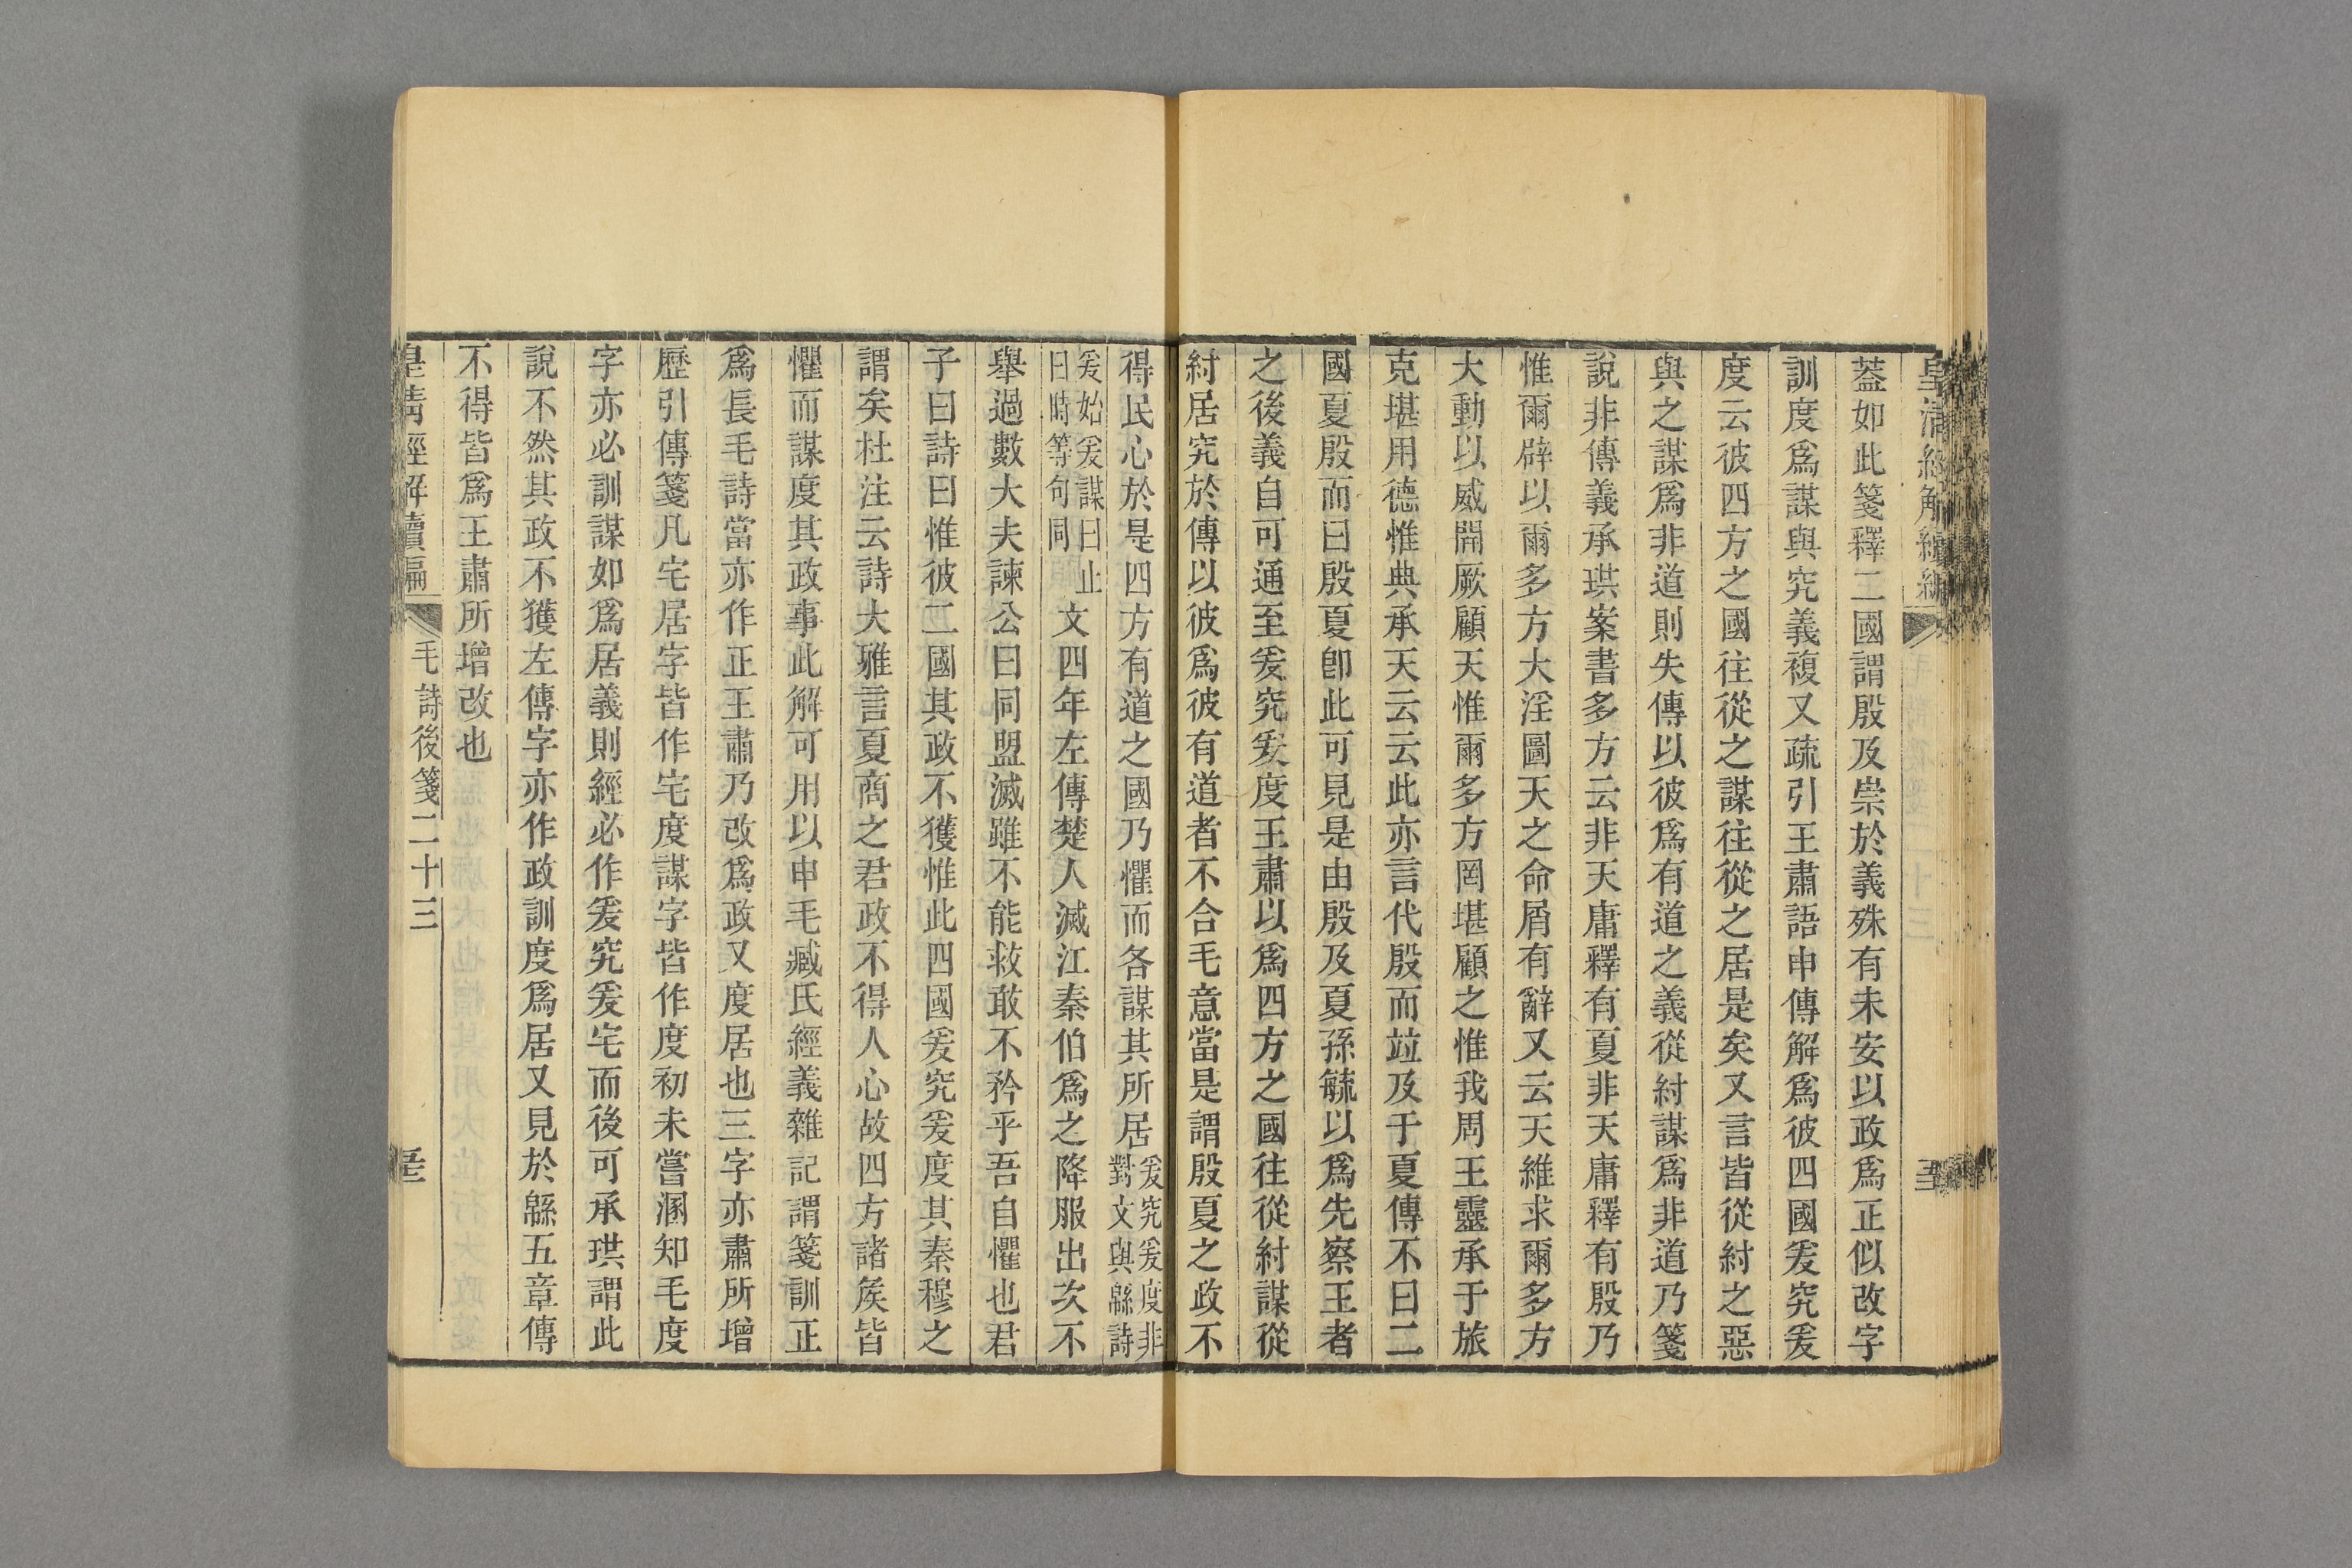 皇清經解續編
蓋如此箋釋二國謂殷及崇於義殊有未安以政爲正似改字
訓度爲謀與究義複又疏引王肅語申傳解爲彼四國爰究爰
度云彼四方之國往從之謀往從之居是矣又言皆從紂之惡
與之謀爲非道則失傳以彼爲有道之義從紂謀爲非道乃箋
說非傳義承珙案書多方云非天庸釋有夏非天庸釋有殷乃
惟爾辟以爾多方大淫圖天之命屑有辭又云天維求爾多方
大動以威開厥顧天惟爾多方罔堪顧之惟我周王靈承于旅
克堪用德惟典承天云云此亦言代殷而竝及于夏傳不曰二
國夏殷而曰殷夏卽此可見是由殷及夏孫毓以爲先察王者
之後義自可通至爰究爰度王肅以爲四方之國往從紂謀從
紂居究於傳以彼爲彼有道者不合毛意當是謂殷夏之政不
得民心於是四方有道之國乃懼而各謀其所居爰究爰度非
對文與緜詩
爰始爰謀曰止
曰時等句同文四年左傳楚人滅江秦伯爲之降服出次不
舉過數大夫諫公曰同盟滅雖不能救敢不矜乎吾自懼也君
子曰詩曰惟彼二國其政不獲惟此四國爰究爰度其秦穆之
謂矣杜注云詩大雅言夏商之君政不得人心故四方諸矦皆
懼而謀度其政事此解可用以申毛臧氏經義雜記謂箋訓正
爲長毛詩當亦作正王肅乃改爲政又度居也三字亦肅所增
歷引傳箋凡宅居字皆作宅度謀字皆作度初未嘗溷知毛度
字亦必訓謀如爲居義則經必作爰究爰宅而後可承珙謂此
說不然其政不獲左傳字亦作政訓度爲居又見於緜五章傳
不得皆爲王肅所增改也
皇清經解續編
毛詩後箋二十三